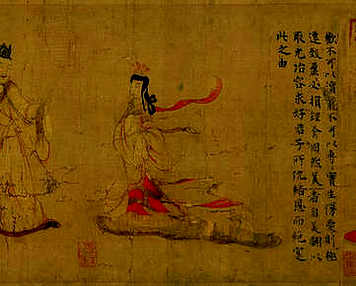 歡不可以黷寵不可以專實生慢愛則極
遷致盈必損理有固然美者自美翩以
取尤冶容求好君子所讎結恩而絕寔
此之由